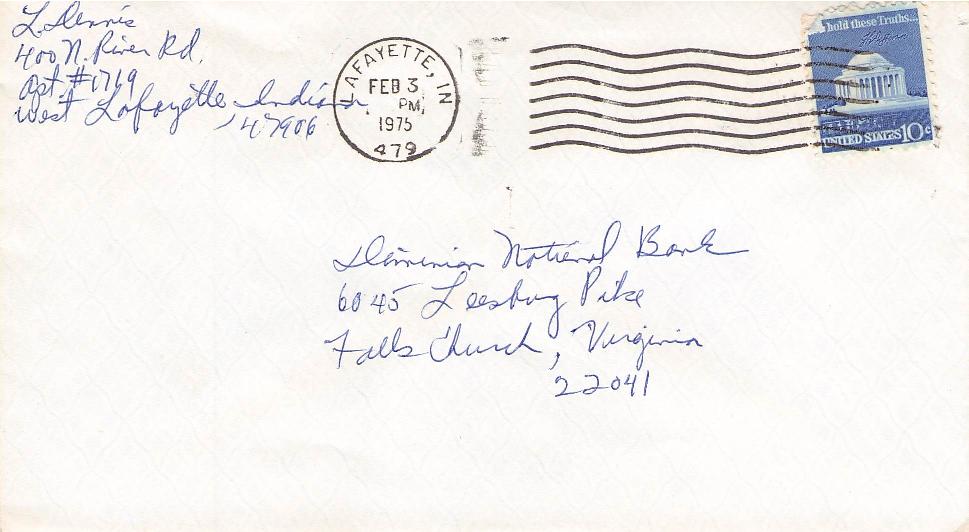 L. Dennis
400 N. River Rd.
Apt. #1719
West Lafayette Indiana
47906
LAFAYETTE, IN
FEB 3
PM
1975
479
hold these Truths...
UNITED STATES 10c
Dominion National Bank
6045 Leesburg Pike
Falls Church, Virginia
22041